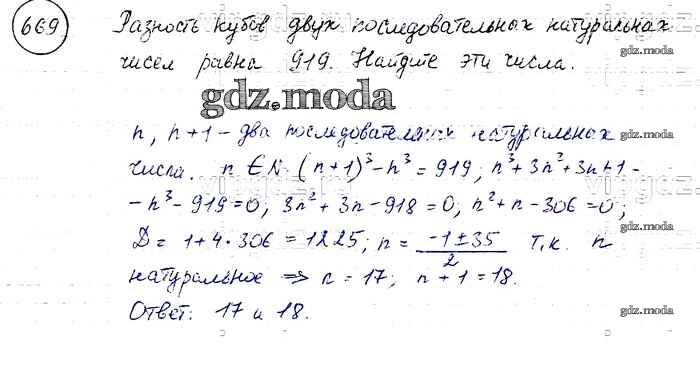 669 Разность кубов двух последовательных натуральных
gdz.moda
чисел равна 919. Найдите эти числа.
gdz.moda
n, n+1 - два последовательных натуральных
числа. n ∈ N. (n+1)³-n³=919; n³+3n²+3n+1-
-n³-919=0; 3n²+3n-918=0; n²+n-306=0;
D=1+4·306=1225; n= (-1±35)/2 т.к. n
gdz.moda
натуральное ⇒ n=17; n+1=18.
Ответ: 17 и 18.
gdz.moda